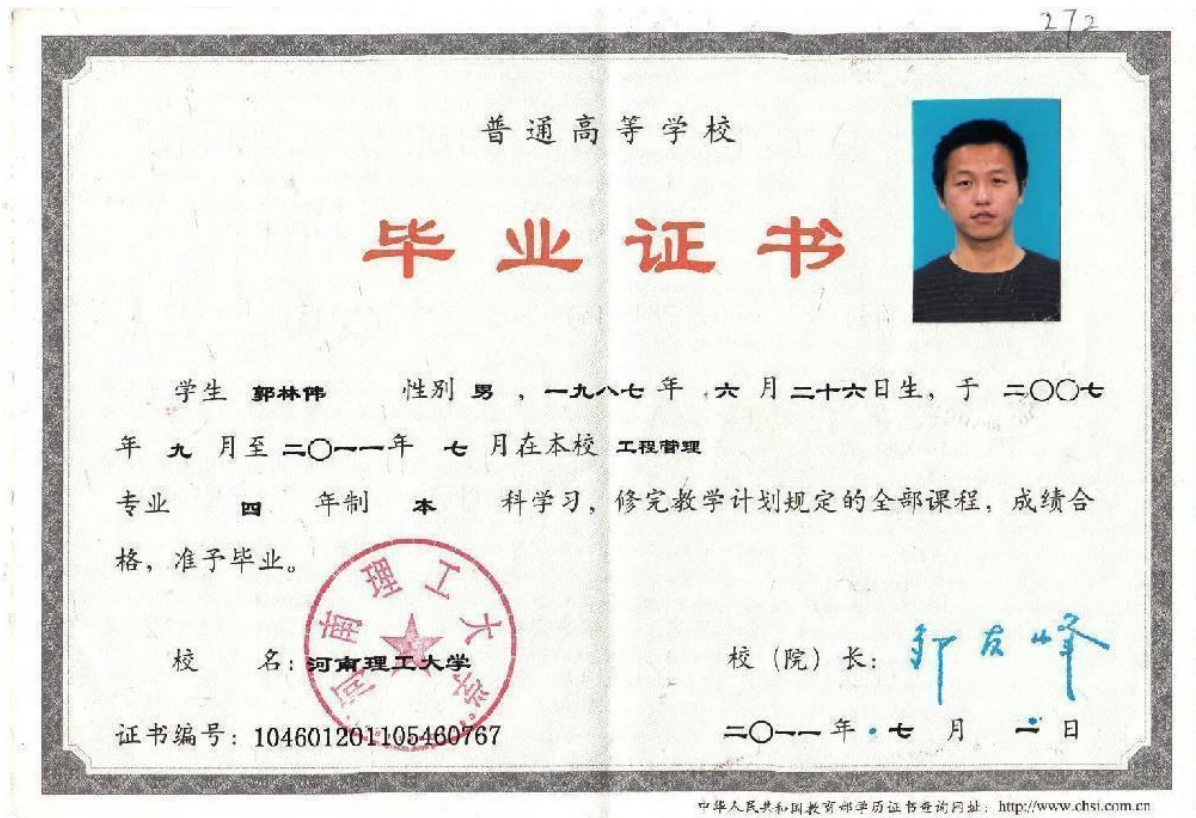 272
普通高等学校
毕业证书
学生 郭林伟 性别 男 ，一九八七 年 六 月 二十六日生，于 二〇〇七
年 九 月至 二〇一一年 七 月在本校 工程管理
专业 四 年制 本 科学习，修完教学计划规定的全部课程，成绩合
格，准予毕业。
河南理工大学
校 名：河南理工大学
校（院）长：邹友峰
证书编号：104601201105460767
二〇一一 年 七 月 一 日
中华人民共和国教育部学历证书查询网址：http://www.chsi.com.cn